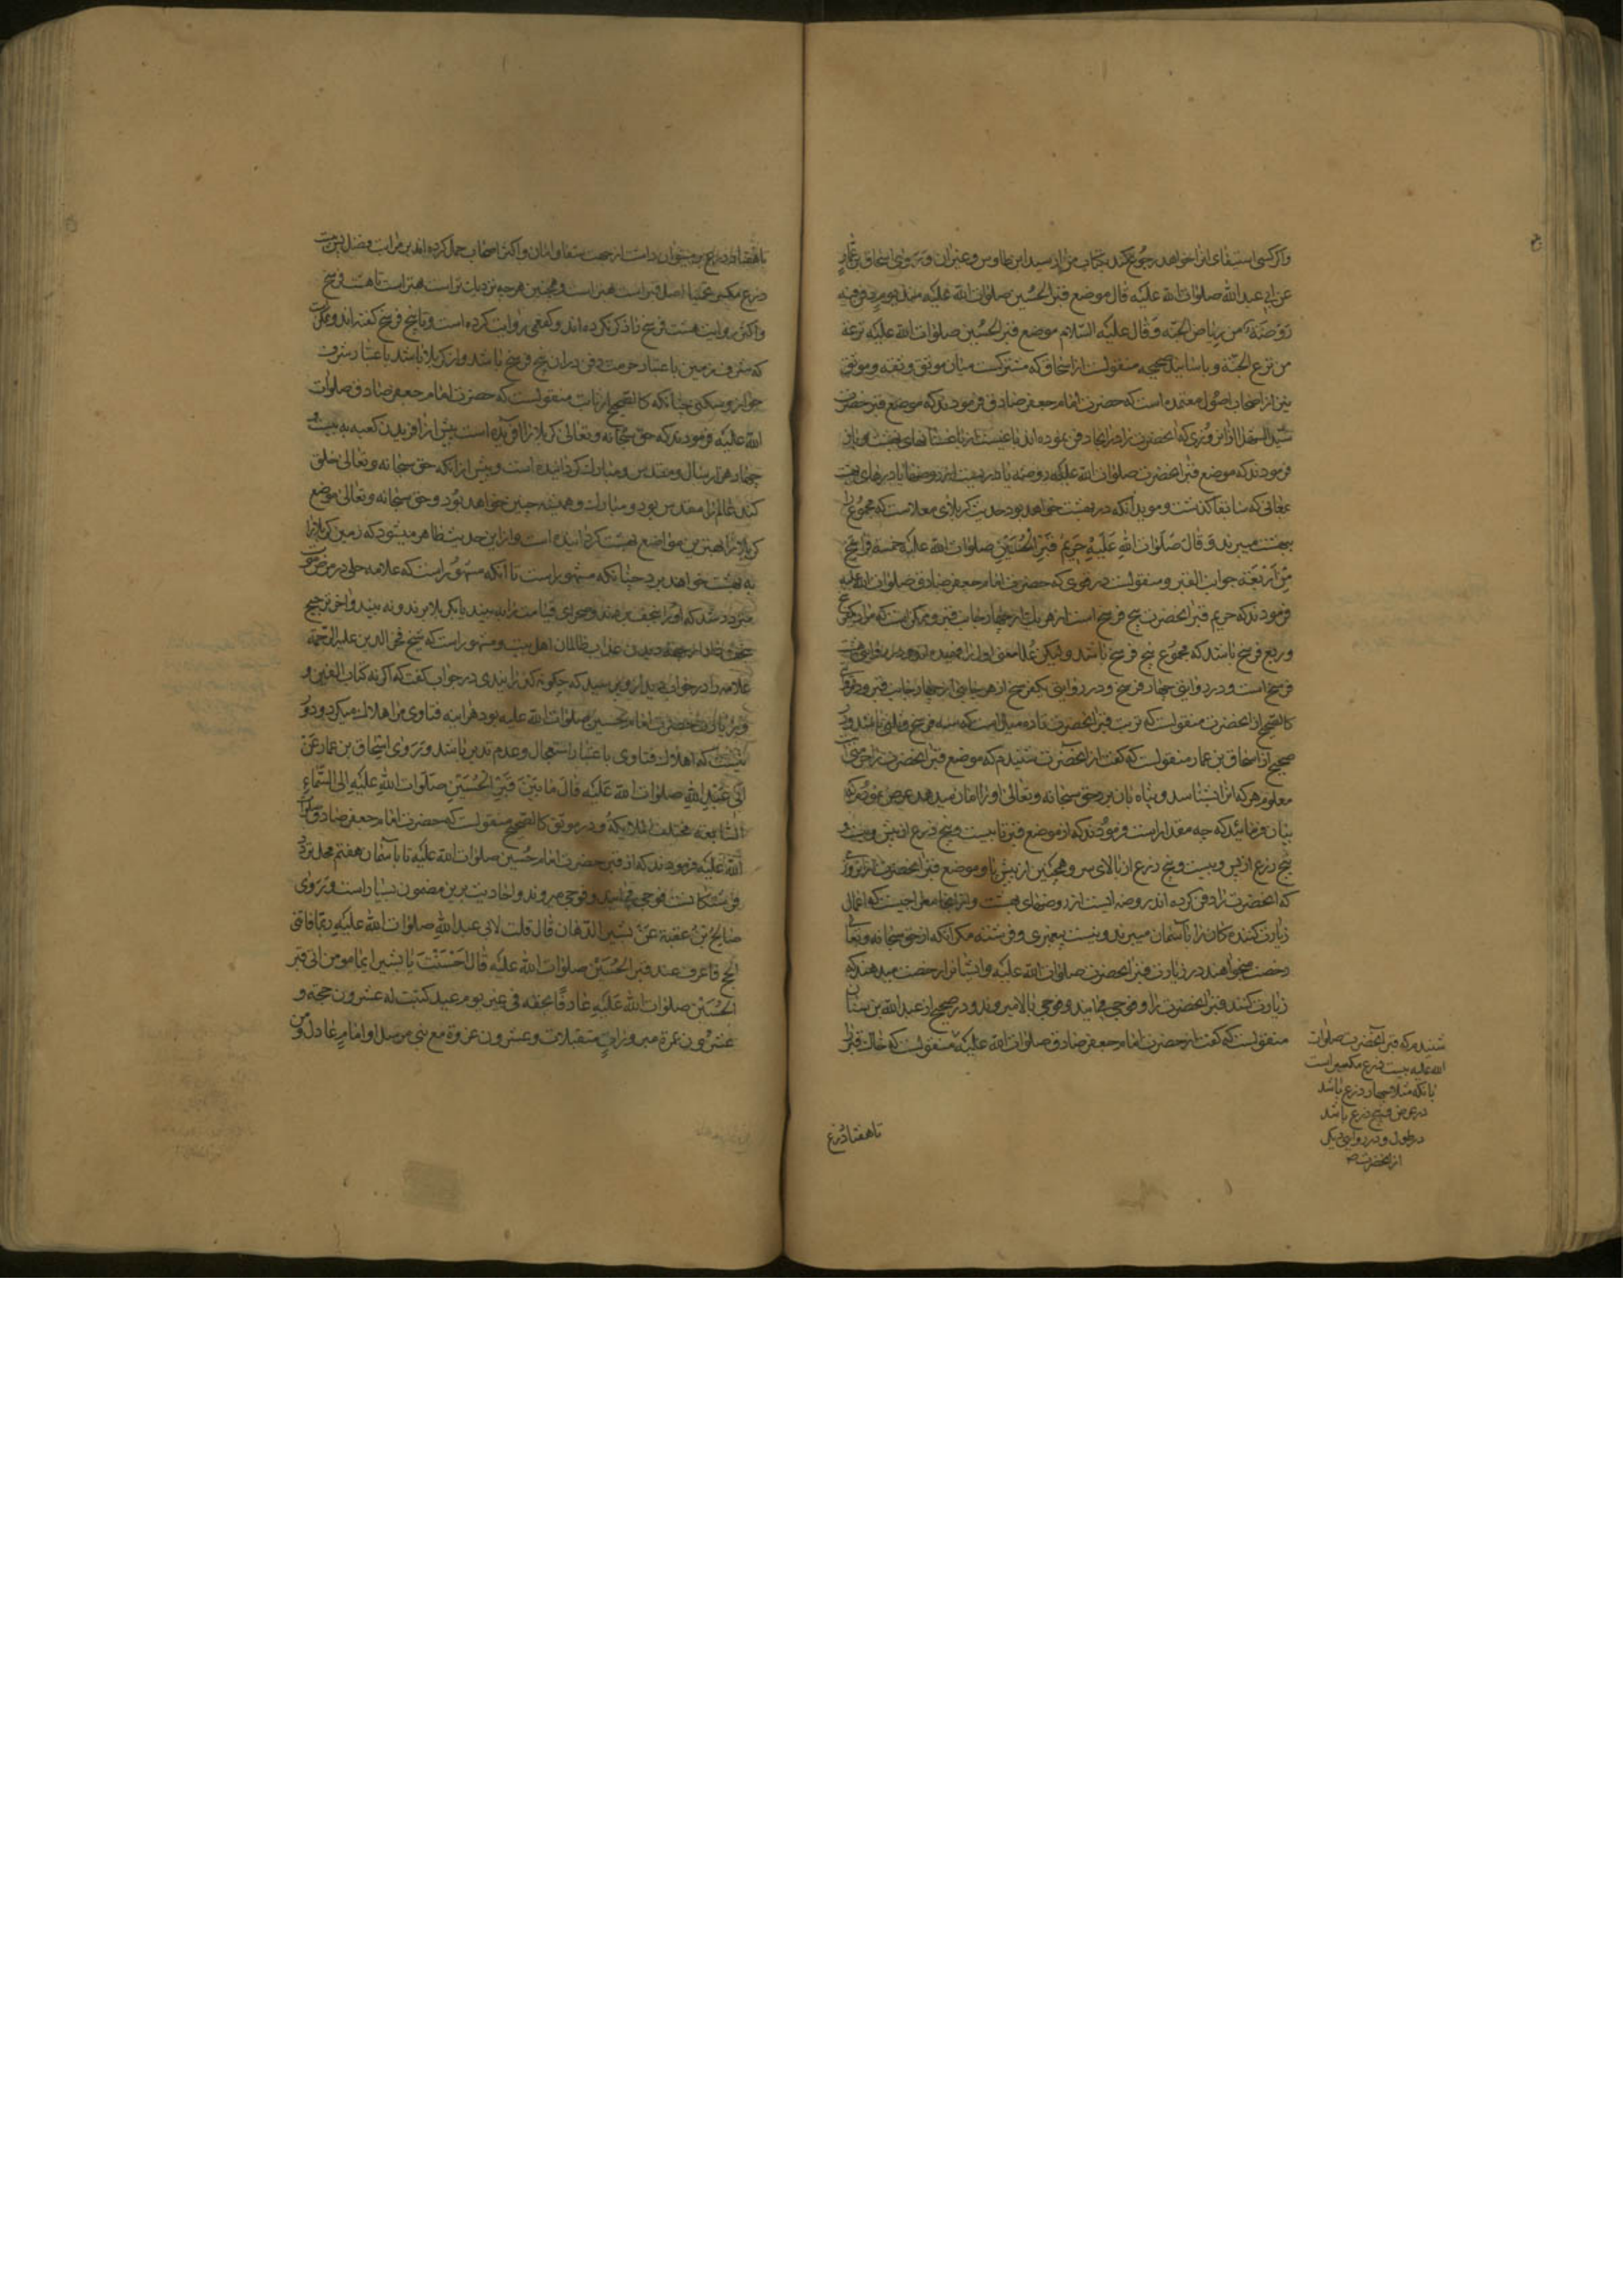 واکر کسی استیفای انرا خواهد رجوع کند بکتاب مزار سید ابن طاوس و غیر ان و روی اسحاق بن عمار
عن ابی عبد الله صلوات الله علیه قال موضع قبر الحسین صلوات الله علیه منذ یوم دفن فیه
روضة من ریاض الجنه و قال علیه السلام موضع قبر الحسین صلوات الله علیه ترعة
من ترع الجنة و باسانید صحیحه منقولست از اسحاق که مشترکست میان موثق و ثقه و موثق
نیز از اصحاب اصول معتمده است که حضرت امام جعفر صادق فرمودند که موضع قبر حضرت
سید الشهدا از ان روزی که انحضرت را در انجا دفن نموده اند باغیست از باغستانهای بهشت و باز
فرمودند که موضع قبر انحضرت صلوات الله علیه روضه یا دریست از روضها یا درهای بهشت
بمعانی که سابقا کذشت و موید انکه در بهشت خواهد بود حدیث کربلای معلاست که مجموع را
ببهشت میبرند و قال صلوات الله علیه حریم قبر الحسین صلوات الله علیه خمسة فراسخ
من اربعة جوانب القبر و منقولست در قوی که حضرت امام جعفر صادق صلوات الله علیه
فرمودند که حریم قبر انحضرت پنج فرسخ است از هر یك از چهار جانب قبر و ممکن است که مراد
و ربع فرسخ باشد که مجموع پنج فرسخ باشد ولیکن علما معنی اول را فهمیده اند و در روایتی هشت
فرسخ است و در روایتی چهار فرسخ و در روایتی یکفرسخ از هر جانبی از چهار جانب قبر و در قوی
کالصحیح از انحضرت منقولست که تربت قبر انحضرت تا ده میل است که سه فرسخ و ثلثی باشد و در
صحیح از اسحاق بن عمار منقولست که کفت از انحضرت شنیدم که موضع قبر انحضرت را حرمتی است
معلوم هر که انرا بشناسد و پناه بان برد حق سبحانه و تعالی او را امان میدهد عرض نمودم که
بیان فرمائید که چه مقدار است فرمودند که از موضع قبر تا بیست و پنج ذرع از پیش و بیست و
پنج ذرع از پس و بیست و پنج ذرع از بالای سر و همچنین از پیش پا و موضع قبر انحضرت از ان روز
که انحضرت را دفن کرده اند روضه ایست از روضهای بهشت و از انجا معراجیست که اعمال
زیارت کننده کان را بآسمان میبرند و نیست پیغمبری و فرشته مکر انکه از حق سبحانه و تعالی
رخصت میخواهند در زیارت قبر انحضرت صلوات الله علیه و ایشانرا رخصت میدهند که
زیارت کنند قبر انحضرت را و فوجی میایند و فوجی بالا میروند و در صحیح از عبد الله بن سنان
منقولست که کفت از حضرت امام جعفر صادق صلوات الله علیه منقولست که خاك قبر
شنیدم که قبر انحضرت صلوات
الله علیه بیست ذرع مکسر است
بانکه مثلا چهار ذرع باشد
در عرض و پنج ذرع باشد
در طول و در روایتی دیکر
از انحضرت
تا هفتاد ذرع
تا هفتاد ذرع بر میتوان داشت از جهت شفا و امان و اکثر اصحاب حمل کرده اند بر مراتب فضل پس بیست
ذرع مکسر اصل قبر است بهتر است و همچنین هر چه نزدیك تر است بهتر است تا هشت فرسخ
و اکثر روایت هشت فرسخ را ذکر نکرده اند و کفعمی روایت کرده است و تا پنج فرسخ کفته اند و ممکن است
که شرف زمین با عتبار حرمت دفن در ان پنج فرسخ باشد و از کربلا باشد باعتبار شرف
جوار و سکنی چنانکه کالصحیح از ثابت منقولست که حضرت امام جعفر صادق صلوات
الله علیه فرمودند که حق سبحانه و تعالی کربلا را افریده است پیش از افریدن کعبه به بیست و
چهار هزار سال و مقدس و مبارك کردانیده است و پیش از انکه حق سبحانه و تعالی خلق
کند عالم را مقدس بود و مبارك و همیشه چنین خواهد بود و حق سبحانه و تعالی موضع
کربلا را بهترین مواضع بهشت کردانیده است و از این حدیث ظاهر میشود که زمین کربلا را
به بهشت خواهند برد چنانکه مشهور است تا انکه مشهور است که علامه حلی در مرض موت
متردد شد که او را بنجف برند و صحرای قیامت را به بیند یا بکربلا برند و نه بیند و اخر ترجیح
نجف داد از جهة دیدن عذاب ظالمان اهل بیت و مشهور است که شیخ فخر الدین علیه الرحمة
علامه را در خواب دید از او پرسید که چکونه کذرانیدی در جواب کفت که اکر نه کتاب الفین و
زیارت حضرت امام حسین صلوات الله علیه بود هر اینه فتاوی مرا هلاك میکرد و دور
نیست که اهلاك فتاوی باعتبار استعجال و عدم تدبر باشد و روی اسحاق بن عمار عن
ابی عبد الله صلوات الله علیه قال ما بین قبر الحسین صلوات الله علیه الی السماء
السابعة مختلف الملایکة و در موثق کالصحیح منقولست که حضرت امام جعفر صادق صلوات
الله علیه فرمودند که از قبر حضرت امام حسین صلوات الله علیه تا بآسمان هفتم محل تردد
فرشتکانست فوجی میایند و فوجی میروند و احادیث برین مضمون بسیار است و روی
صالح بن عقبة عن بشیر الدهان قال قلت لابی عبد الله صلوات الله علیه ربما فاتنی
الحج فاعرف عند قبر الحسین صلوات الله علیه قال احسنت یا بشیر ایما مومن اتی قبر
الحسین صلوات الله علیه عارفا بحقه فی غیر یوم عید کتبت له عشرون حجة و
عشرون عمرة مبرورات متقبلات و عشرون غزوة مع نبی مرسل او امام عادل و من